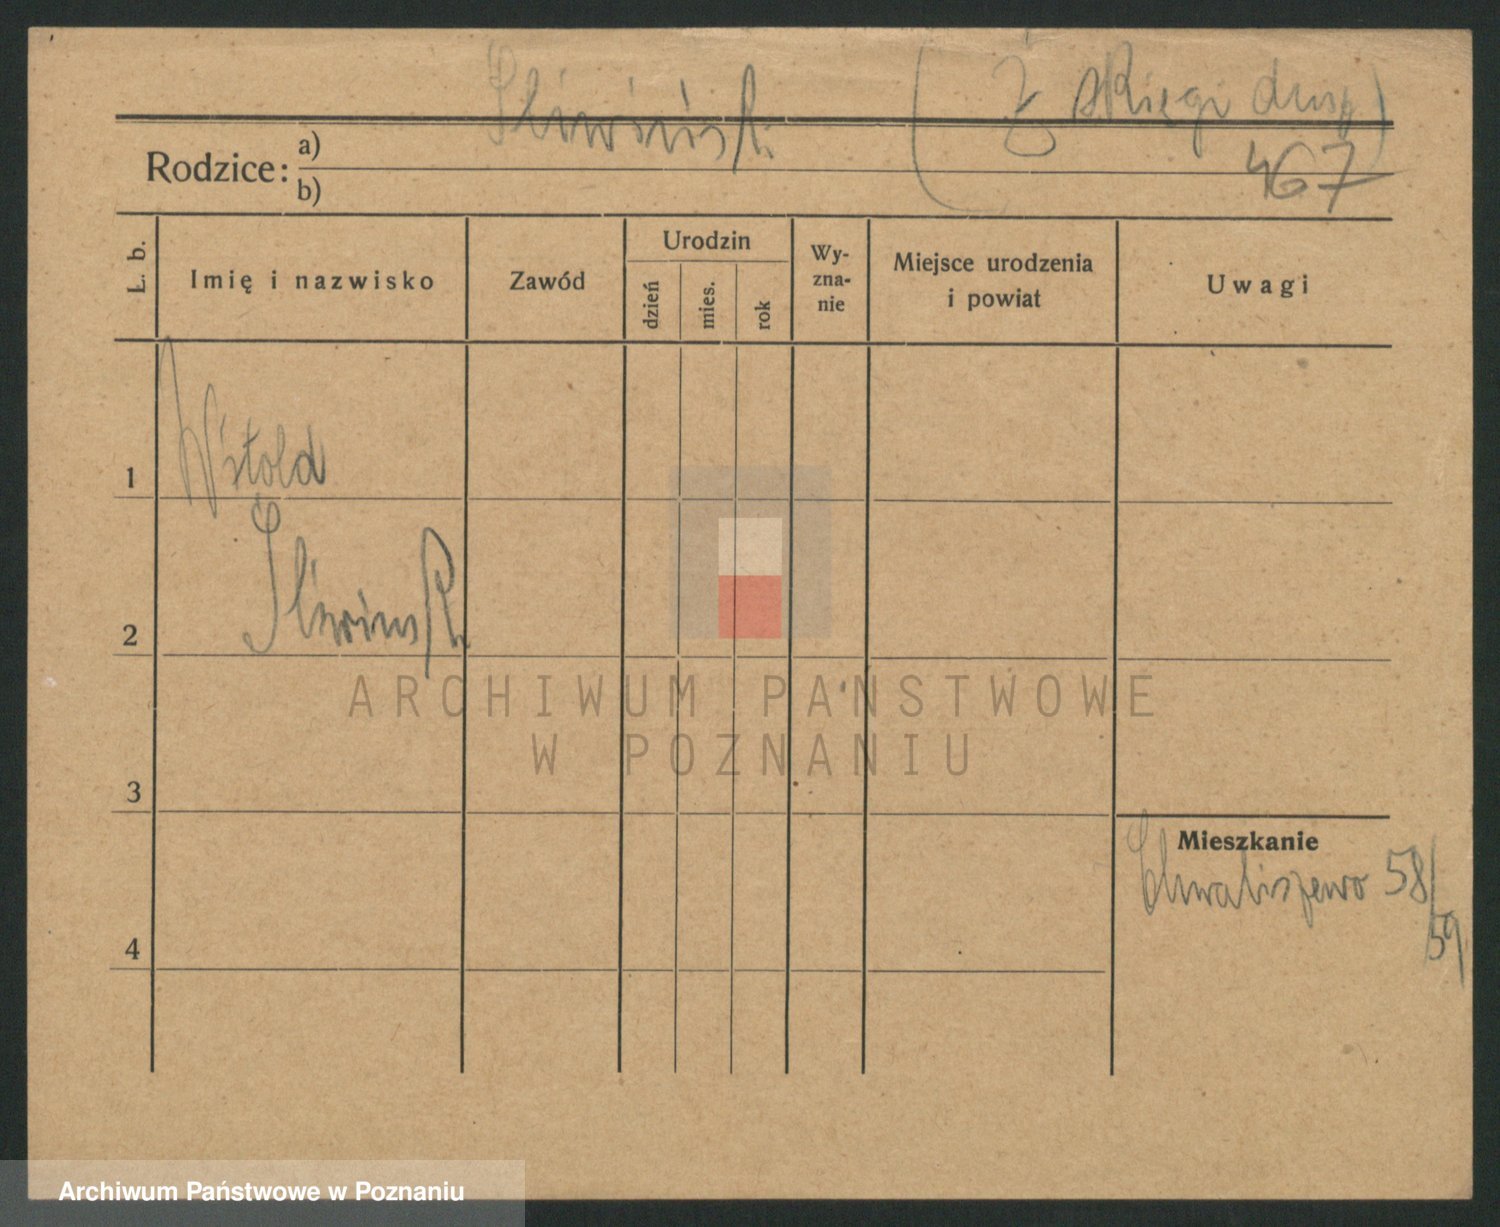 Śliwiński
(Z Księgi dusz
467
Rodzice: a)
b)
L. b.
Imię i nazwisko
Zawód
Urodzin
dzień
mies.
rok
Wy-
zna-
nie
Miejsce urodzenia
i powiat
Uwagi
Witold
1
Śliwiński
2
ARCHIWUM PAŃSTWOWE
W POZNANIU
3
Mieszkanie
Chwaliszewo 58/
59
4
Archiwum Państwowe w Poznaniu